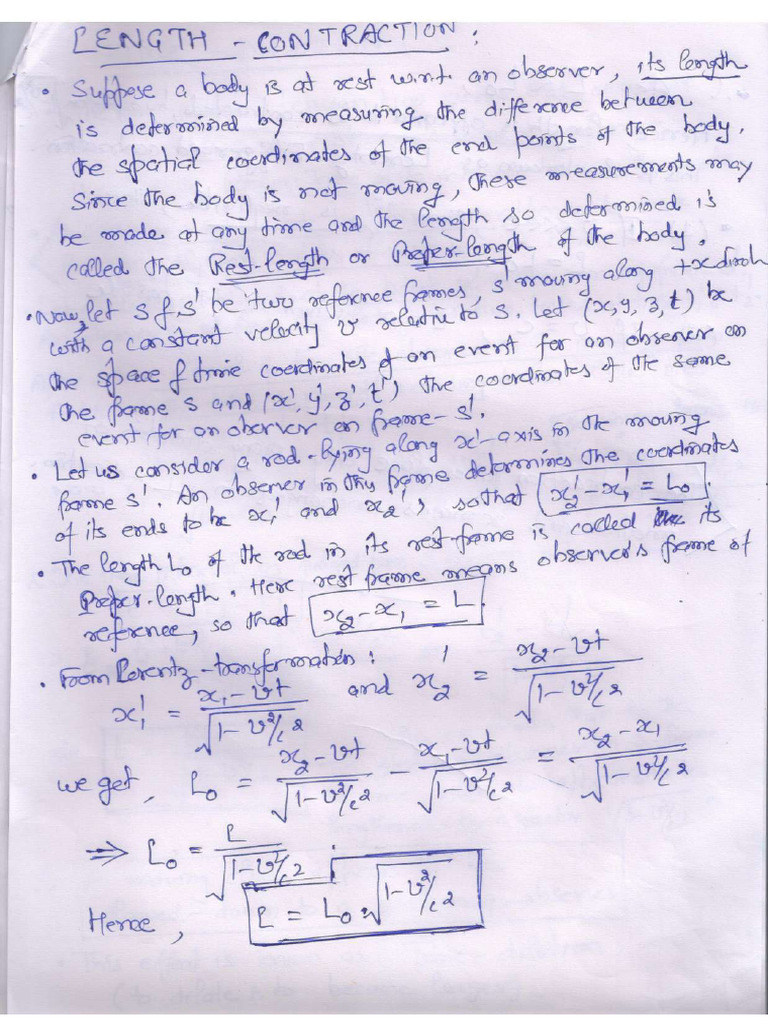 LENGTH - CONTRACTION :
• Suppose a body is at rest w.r.t. an observer, its length
is determined by measuring the difference between
the spatial coordinates of the end points of the body.
Since the body is not moving, these measurements may
be made at any time and the length so determined is
called the Rest-length or Proper-length of the body.
• Now, let S & S' be two reference frames, S' moving along +x dirn
with a constant velocity v relative to S. Let (x, y, z, t) be
the space & time coordinates of an event for an observer on
the frame S and (x', y', z', t') the coordinates of the same
event for an observer on frame - S'.
• Let us consider a rod - lying along x'-axis in the moving
frame S'. An observer in this frame determines the coordinates
of its ends to be x₁' and x₂', so that x₂' - x₁' = L₀.
• The length L₀ of the rod in its rest frame is called its
Proper-length. Here rest frame means observer's frame of
reference, so that x₂ - x₁ = L.
• From Lorentz - transformation :
x₁' = (x₁ - vt)/√(1 - v²/c²) and x₂' = (x₂ - vt)/√(1 - v²/c²)
we get, L₀ = (x₂ - vt)/√(1 - v²/c²) - (x₁ - vt)/√(1 - v²/c²) = (x₂ - x₁)/√(1 - v²/c²)
⇒ L₀ = L/√(1 - v²/c²) .
Hence, L = L₀ . √(1 - v²/c²)